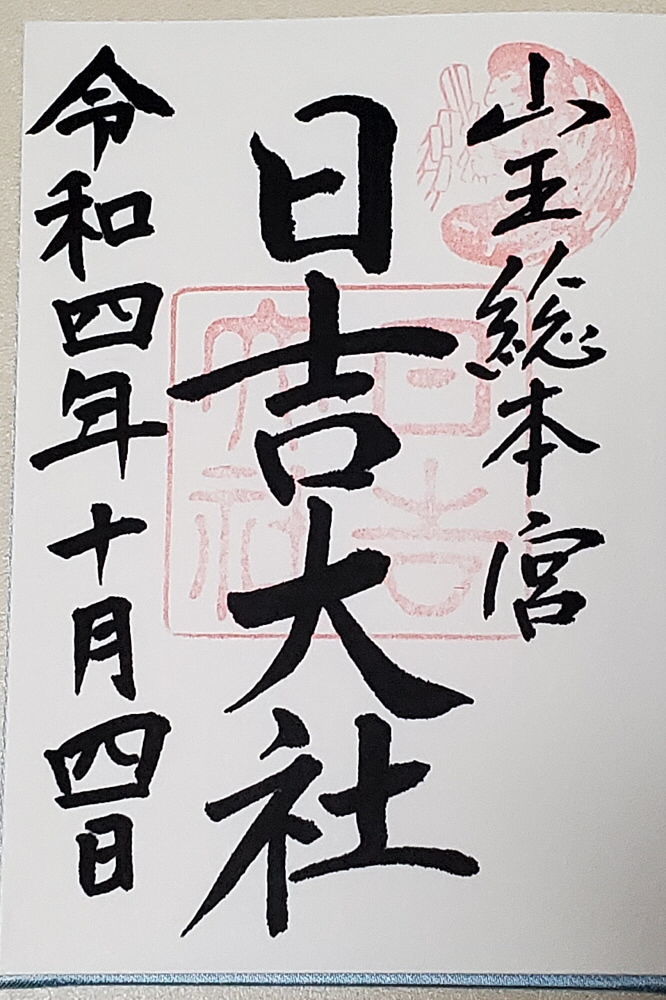 山王総本宮
日吉大社
日吉大社
令和四年十月四日